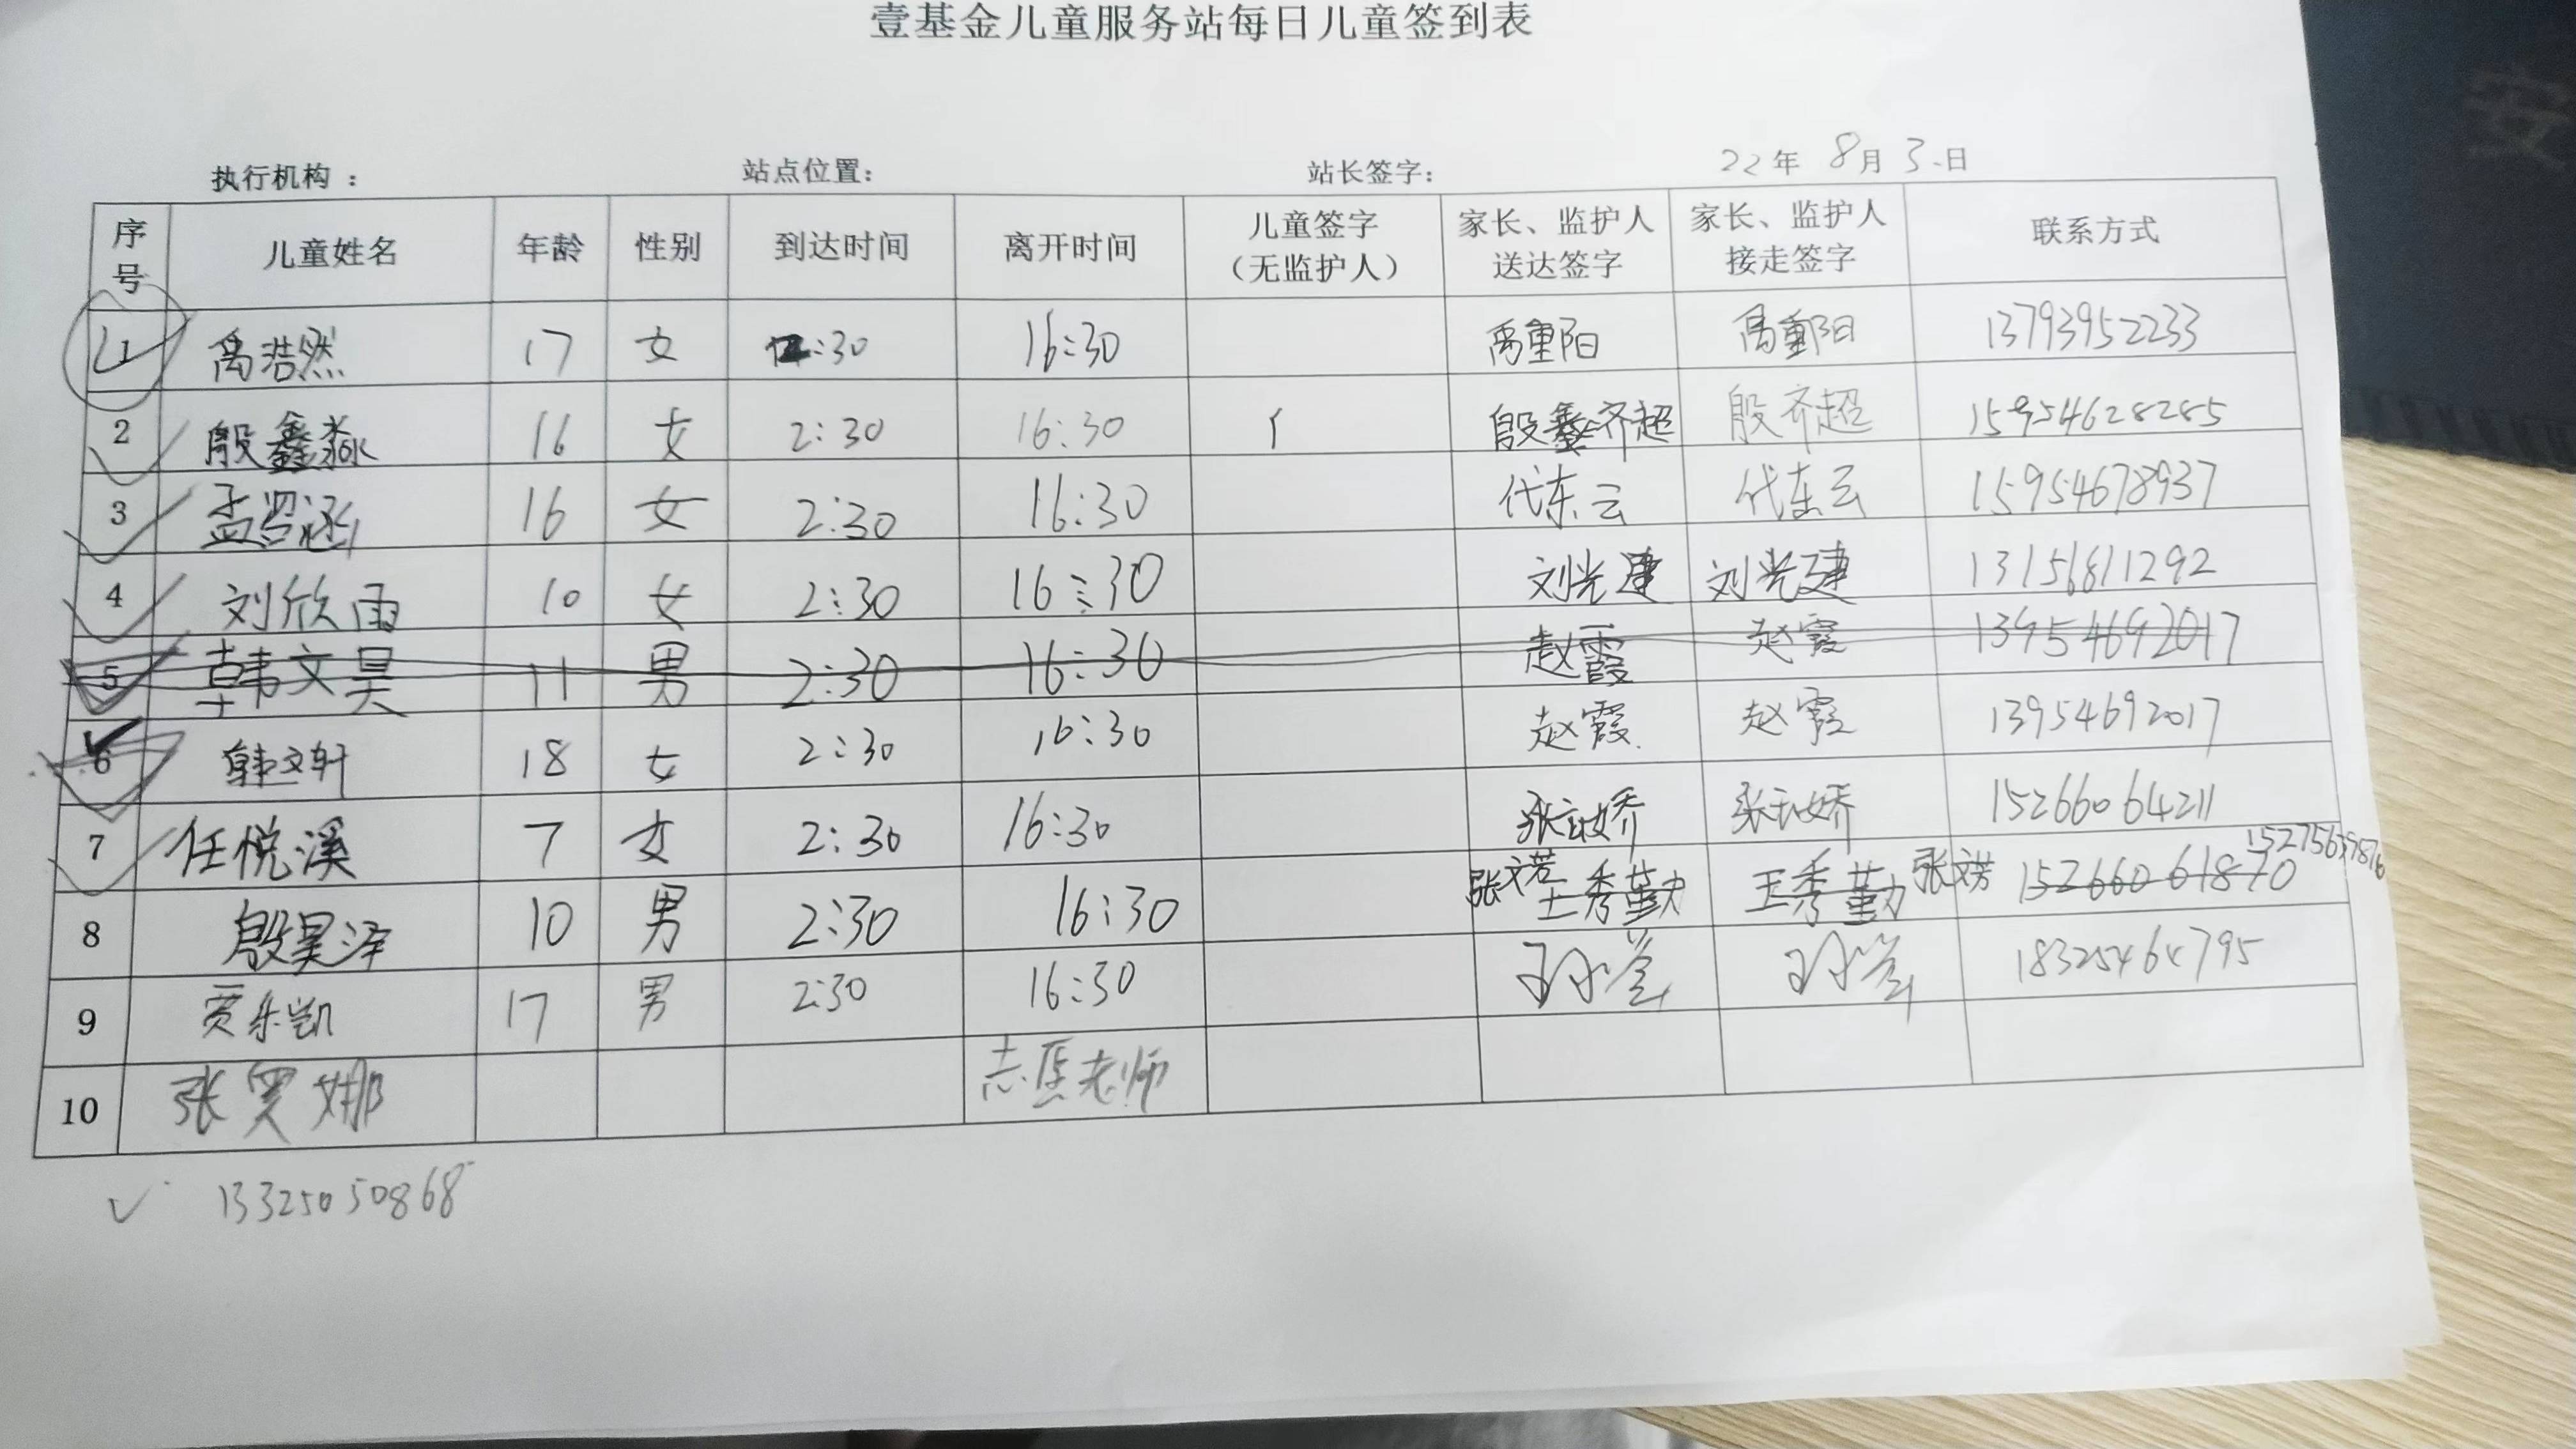 壹基金儿童服务站每日儿童签到表
执行机构： 站点位置： 站长签字： 22年 8月 3日
序号 儿童姓名 年龄 性别 到达时间 离开时间 儿童签字（无监护人） 家长、监护人送达签字 家长、监护人接走签字 联系方式
1 禹浩然 17 女 2:30 16:30 禹重阳 禹重阳 13793952233
2 殷鑫淼 16 女 2:30 16:30 殷齐超 殷齐超 15954628285
3 孟 涵 16 女 2:30 16:30 代东云 代东云 15954678937
4 刘欣雨 10 女 2:30 16:30 刘光建 刘光建 13156811292
5 韩文昊 11 男 2:30 16:30 赵霞 赵霞 13954692017
6 韩文轩 18 女 2:30 16:30 赵霞 赵霞 13954692017
7 任悦溪 7 女 2:30 16:30 张 娇 张 娇 15266064211
8 殷昊泽 10 男 2:30 16:30 张文芳 王秀勤 王秀勤 张文芳 15266061870
9 贾乐凯 17 男 2:30 16:30 18325464795
10 张 娜 志愿老师
13325050868